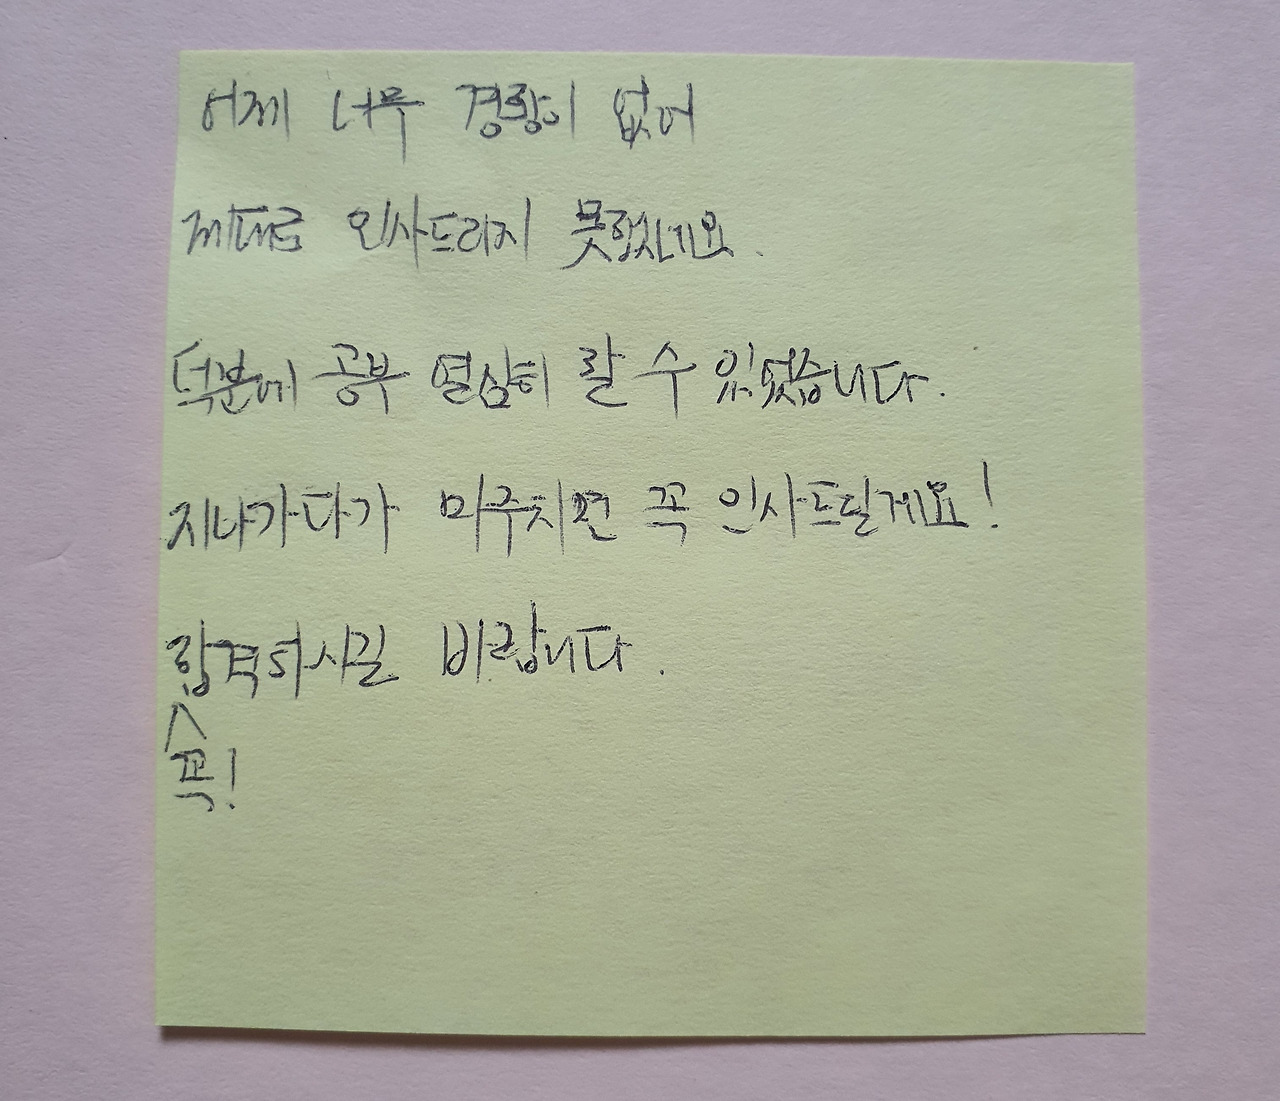 어제 너무 경황이 없어
제대로 인사드리지 못했네요.
덕분에 공부 열심히 할 수 있었습니다.
지나가다가 마주치면 꼭 인사드릴게요!
합격하시길 바랍니다.
꼭!